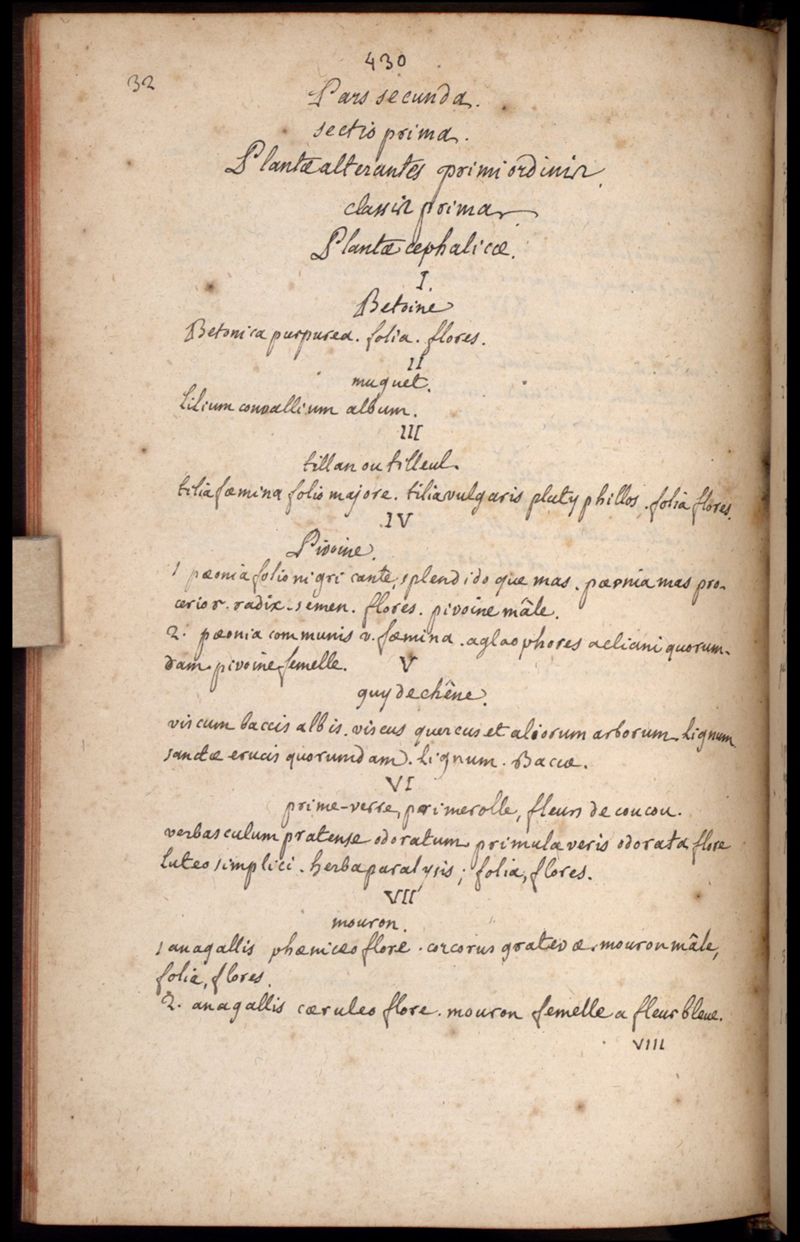 430
32
Pars secunda.
sectio prima.
Plantæ alterantes primi ordinis.
classis prima
Plantæ cephalicæ.
I.
Betoine
Betonica purpurea. folia. flores.
II
muguet.
lilium convallium album.
III
tillau ou tilleul.
tilia fœmina folio majore. tilia vulgaris platyphillos. folia flores.
IV
Pivoine.
1 pæonia folio nigricante, splendido que mas. pæonia mas pro-
cerior. radix. semen. flores. pivoine mâle.
2. pæonia communis v. fæmina. aglaophores aeliani quorum-
dam. pivoine femelle.
V
guy de chêne.
viscum baccis albis. viscus quercus et aliorum arborum. Lignum
sanctæ crucis quorumdam. Lignum. Baccæ.
VI
prime-verre, primerolle, fleurs de coucou.
verbasculum pratense odoratum. primula veris odorata flore
luteo simplici. herba paralysis; folia, flores.
VII
mouron.
1 anagallis phœniceo flore. corcorus gratevæ. mouron mâle,
folia, flores.
2. anagallis cæruleo flore. mouron femelle a fleur bleue.
VIII